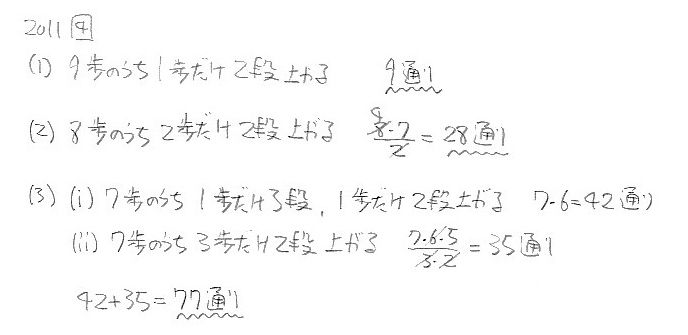 2011 4
(1) 9歩のうち1歩だけ2段上がる 9通り
(2) 8歩のうち2歩だけ2段上がる 8・7/2=28通り
(3) (i) 7歩のうち1歩だけ3段、1歩だけ2段上がる 7・6=42通り
(ii) 7歩のうち3歩だけ2段上がる 7・6・5/3・2=35通り
42+35=77通り